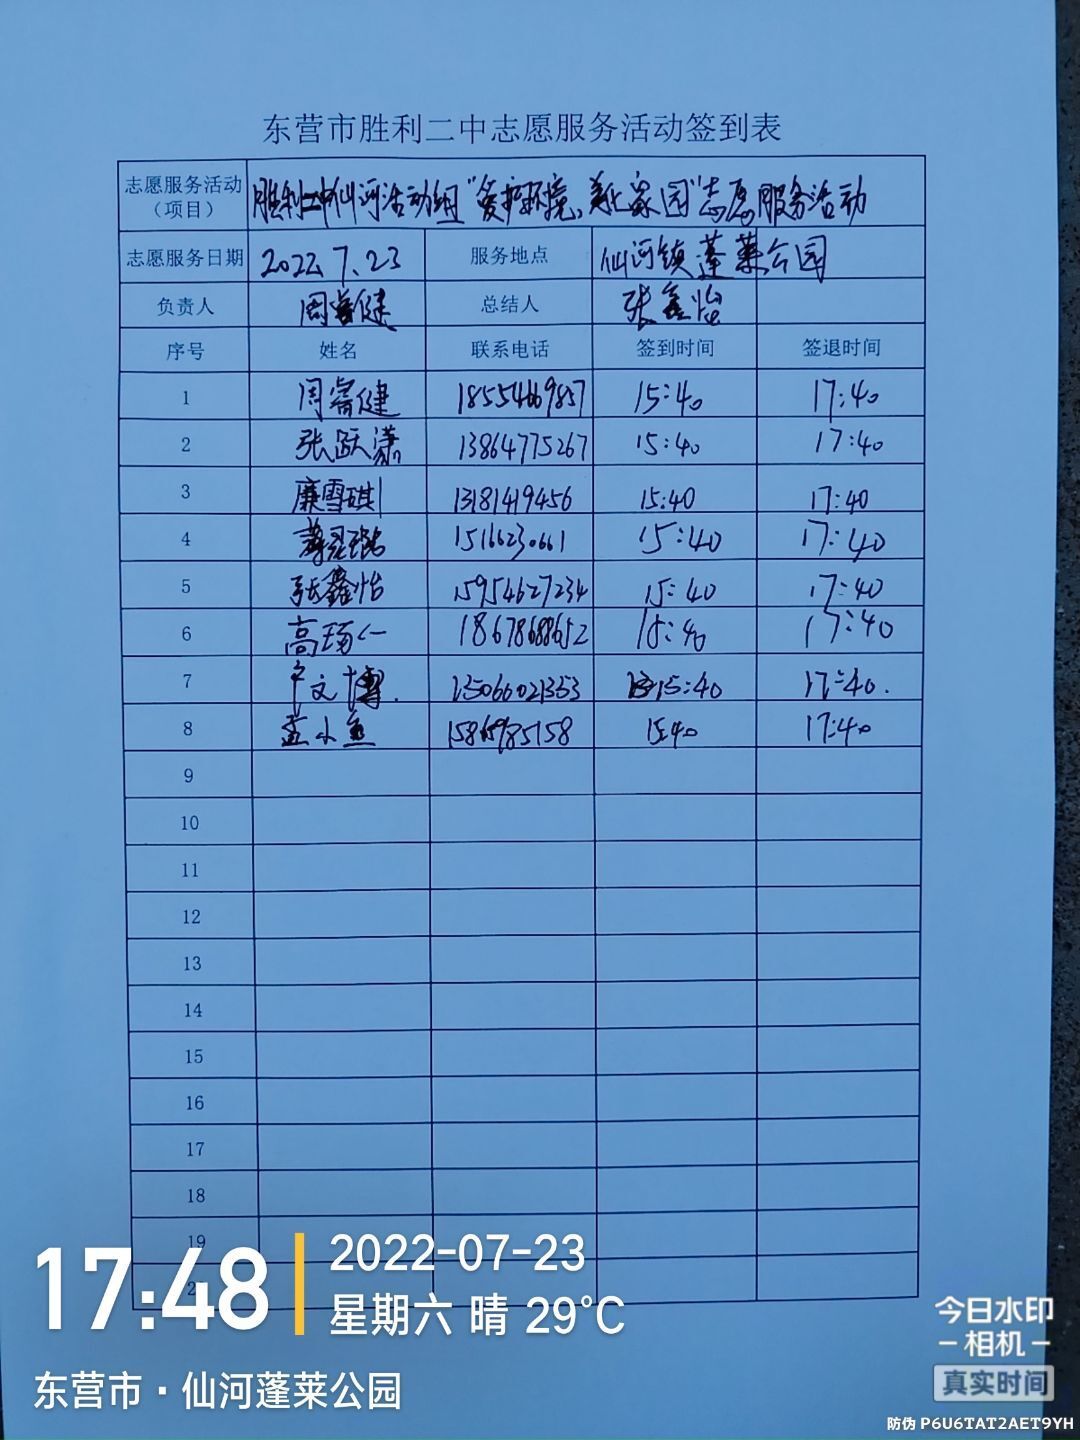 东营市胜利二中志愿服务活动签到表
志愿服务活动（项目） 胜利二中仙河活动组“爱护环境、美化家园”志愿服务活动
志愿服务日期 2022.7.23 服务地点 仙河镇蓬莱公园
负责人 周睿健 总结人 张鑫怡
序号 姓名 联系电话 签到时间 签退时间
1 周睿健 18554669857 15:40 17:40
2 张跃潇 13864775267 15:40 17:40
3 廉雪琪 13181419456 15:40 17:40
4 15166230661 15:40 17:40
5 张鑫怡 15954627234 15:40 17:40
6 高 18678688652 15:40 17:40
7 文博 135066021353 15:40 17:40
8 15:40 17:40
9
10
11
12
13
14
15
16
17
18
19
17:48 2022-07-23
星期六 晴 29°C
东营市·仙河蓬莱公园
今日水印
相机
真实时间
防伪 P6U6TAT2AET9YH